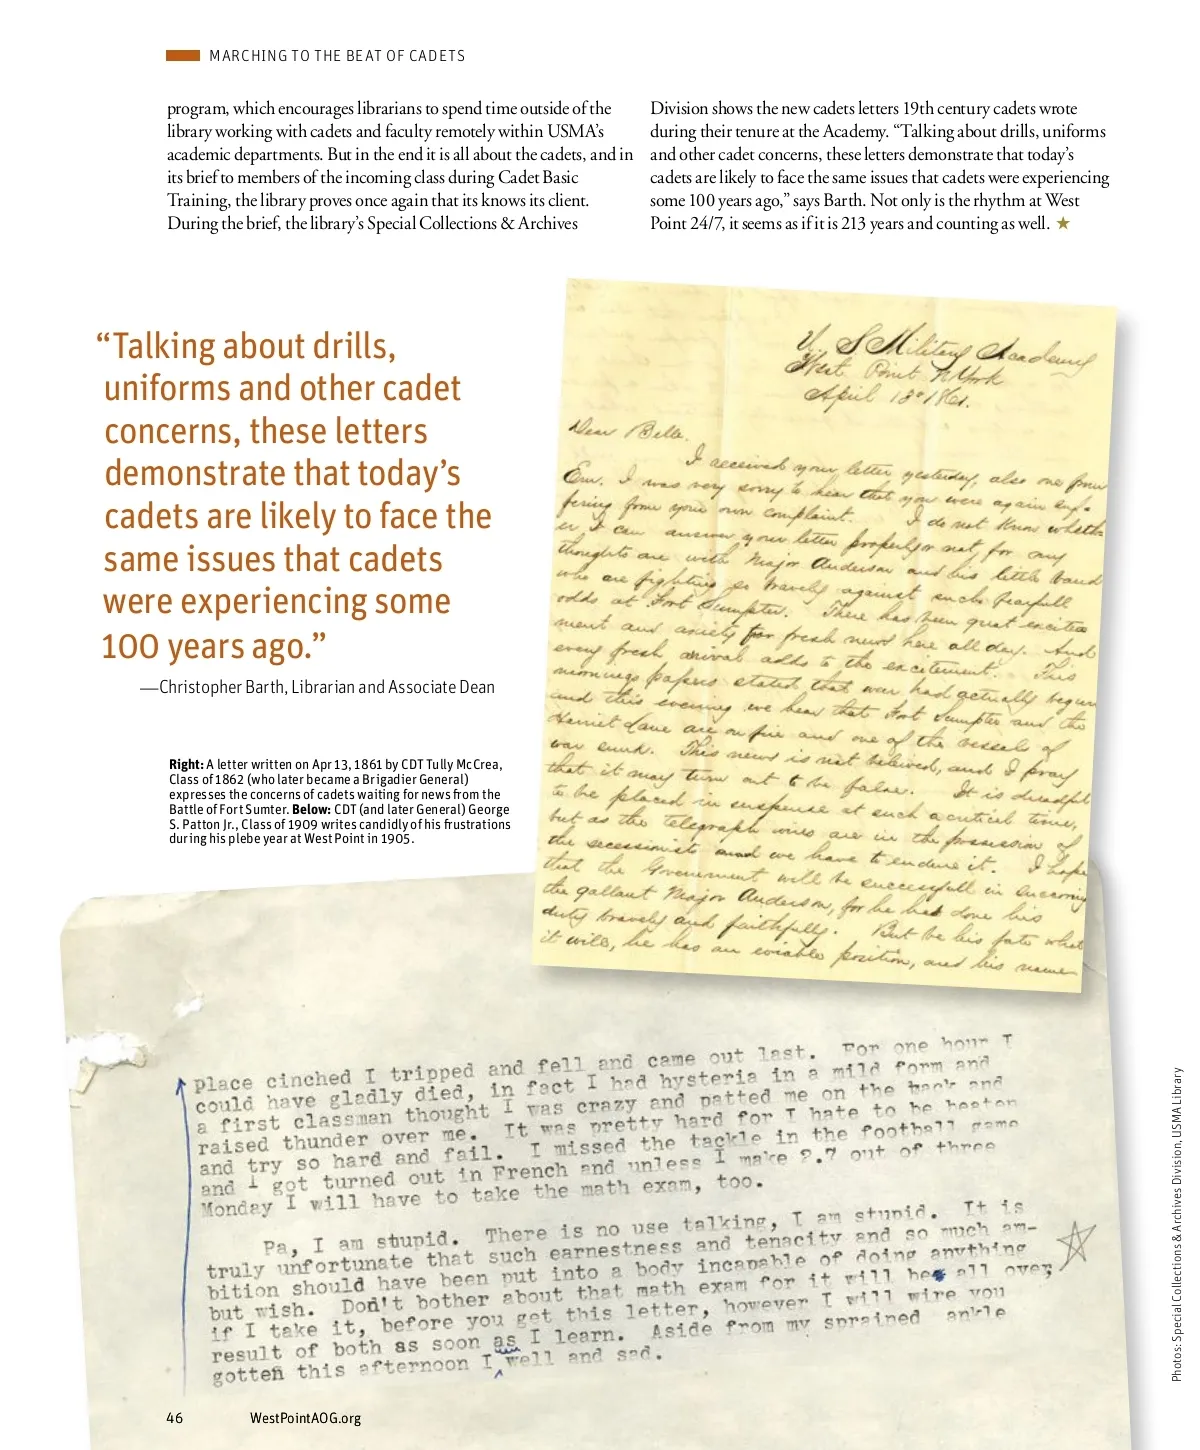 MARCHING TO THE BEAT OF CADETS
program, which encourages librarians to spend time outside of the
library working with cadets and faculty remotely within USMA's
academic departments. But in the end it is all about the cadets, and in
its brief to members of the incoming class during Cadet Basic
Training, the library proves once again that its knows its client.
During the brief, the library's Special Collections & Archives
Division shows the new cadets letters 19th century cadets wrote
during their tenure at the Academy. “Talking about drills, uniforms
and other cadet concerns, these letters demonstrate that today's
cadets are likely to face the same issues that cadets were experiencing
some 100 years ago,” says Barth. Not only is the rhythm at West
Point 24/7, it seems as if it is 213 years and counting as well. ★
“Talking about drills,
uniforms and other cadet
concerns, these letters
demonstrate that today's
cadets are likely to face the
same issues that cadets
were experiencing some
100 years ago.”
—Christopher Barth, Librarian and Associate Dean
Right: A letter written on Apr 13, 1861 by CDT Tully McCrea,
Class of 1862 (who later became a Brigadier General)
expresses the concerns of cadets waiting for news from the
Battle of Fort Sumter. Below: CDT (and later General) George
S. Patton Jr., Class of 1909 writes candidly of his frustrations
during his plebe year at West Point in 1905.
U. S Military Academy
West Point N York
April 13th 1861.
Dear Belle.
I received your letter yesterday, also one from
Em. I was very sorry to hear that you were again suf-
fering from your own complaint. I do not know wheth-
er I can answer your letter properly or not, for my
thoughts are with Major Anderson and his little band
who are fighting so bravely against such fearfull
odds at Fort Sumpter. There has been great excite
ment and anxiety for fresh news here all day. And
every fresh arrival adds to the excitement. This
mornings papers stated that war had actually begun
and this evening we hear that Fort Sumpter and the
Harriet Lane are on fire and one of the vessels of
war sunk. This news is not believed, and I pray
that it may turn out to be false. It is dreadful
to be placed in suspense at such a critical time,
but as the telegraph wires are in the possession of
the secessionists and we have to endure it. I hope
that the Government will be successfull in succoring
the gallant Major Anderson, for he has done his
duty bravely and faithfully. But be his fate what
it will, he has an enviable position, and his name
place cinched I tripped and fell and came out last. For one hour I
could have gladly died, in fact I had hysteria in a mild form and
a first classman thought I was crazy and patted me on the back and
raised thunder over me. It was pretty hard for I hate to be beaten
and try so hard and fail. I missed the tackle in the football game
and I got turned out in French and unless I make 2.7 out of three
Monday I will have to take the math exam, too.
Pa, I am stupid. There is no use talking, I am stupid. It is
truly unfortunate that such earnestness and tenacity and so much am-
bition should have been put into a body incapable of doing anything
but wish. Don't bother about that math exam for it will be all over,
if I take it, before you get this letter, however I will wire you
result of both as soon as I learn. Aside from my sprained ankle
gotten this afternoon I well and sad.
46
WestPointAOG.org
Photos: Special Collections & Archives Division, USMA Library